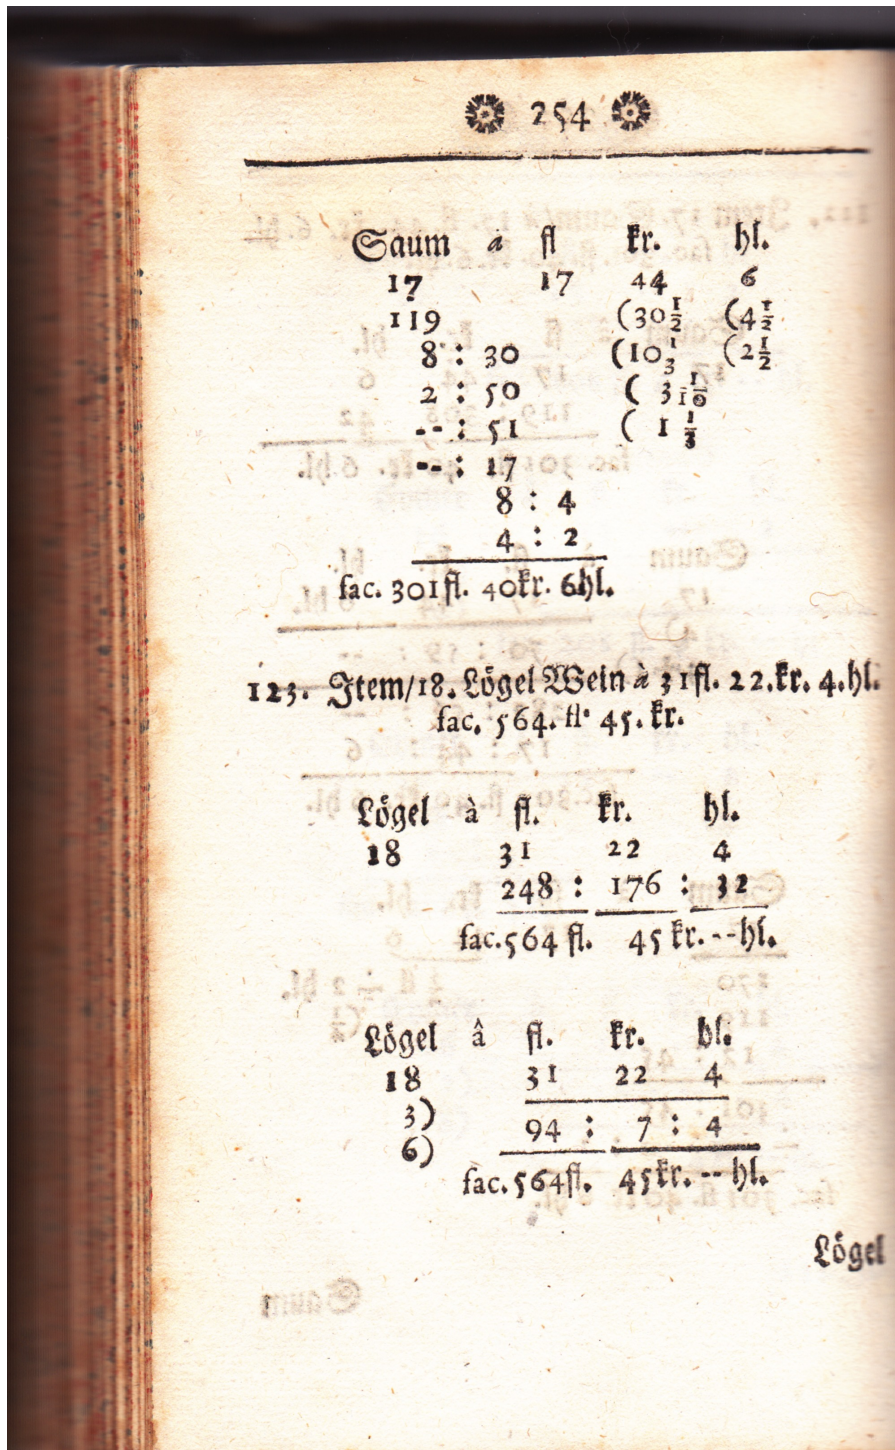 254
Saum à fl kr. hl.
17 17 44 6
119 (30 1/2 (4 1/2
8 : 30 (10 1/3 (2 1/2
2 : 50 ( 3 1/10
-- : 51 ( 1 1/3
-- : 17
8 : 4
4 : 2
fac. 301 fl. 40kr. 6hl.
123. Item/18. Lögel Wein à 31fl. 22.kr. 4.hl.
fac. 564. fl. 45. kr.
Lögel à fl. kr. hl.
18 31 22 4
248 : 176 : 32
fac. 564 fl. 45 kr. -- hl.
Lögel â fl. kr. hl.
18 31 22 4
3)
94 : 7 : 4
6)
fac. 564fl. 45kr. -- hl.
Lögel